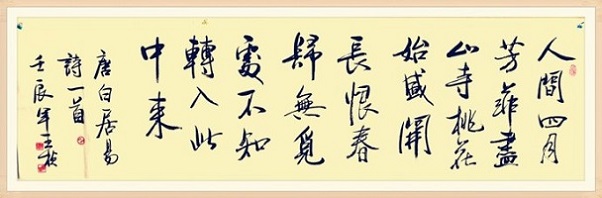 人間四月
芳菲盡
山寺桃花
始盛開
長恨春
歸無覓
處不知
轉入此
中来
唐白居易
詩一首
壬辰年王